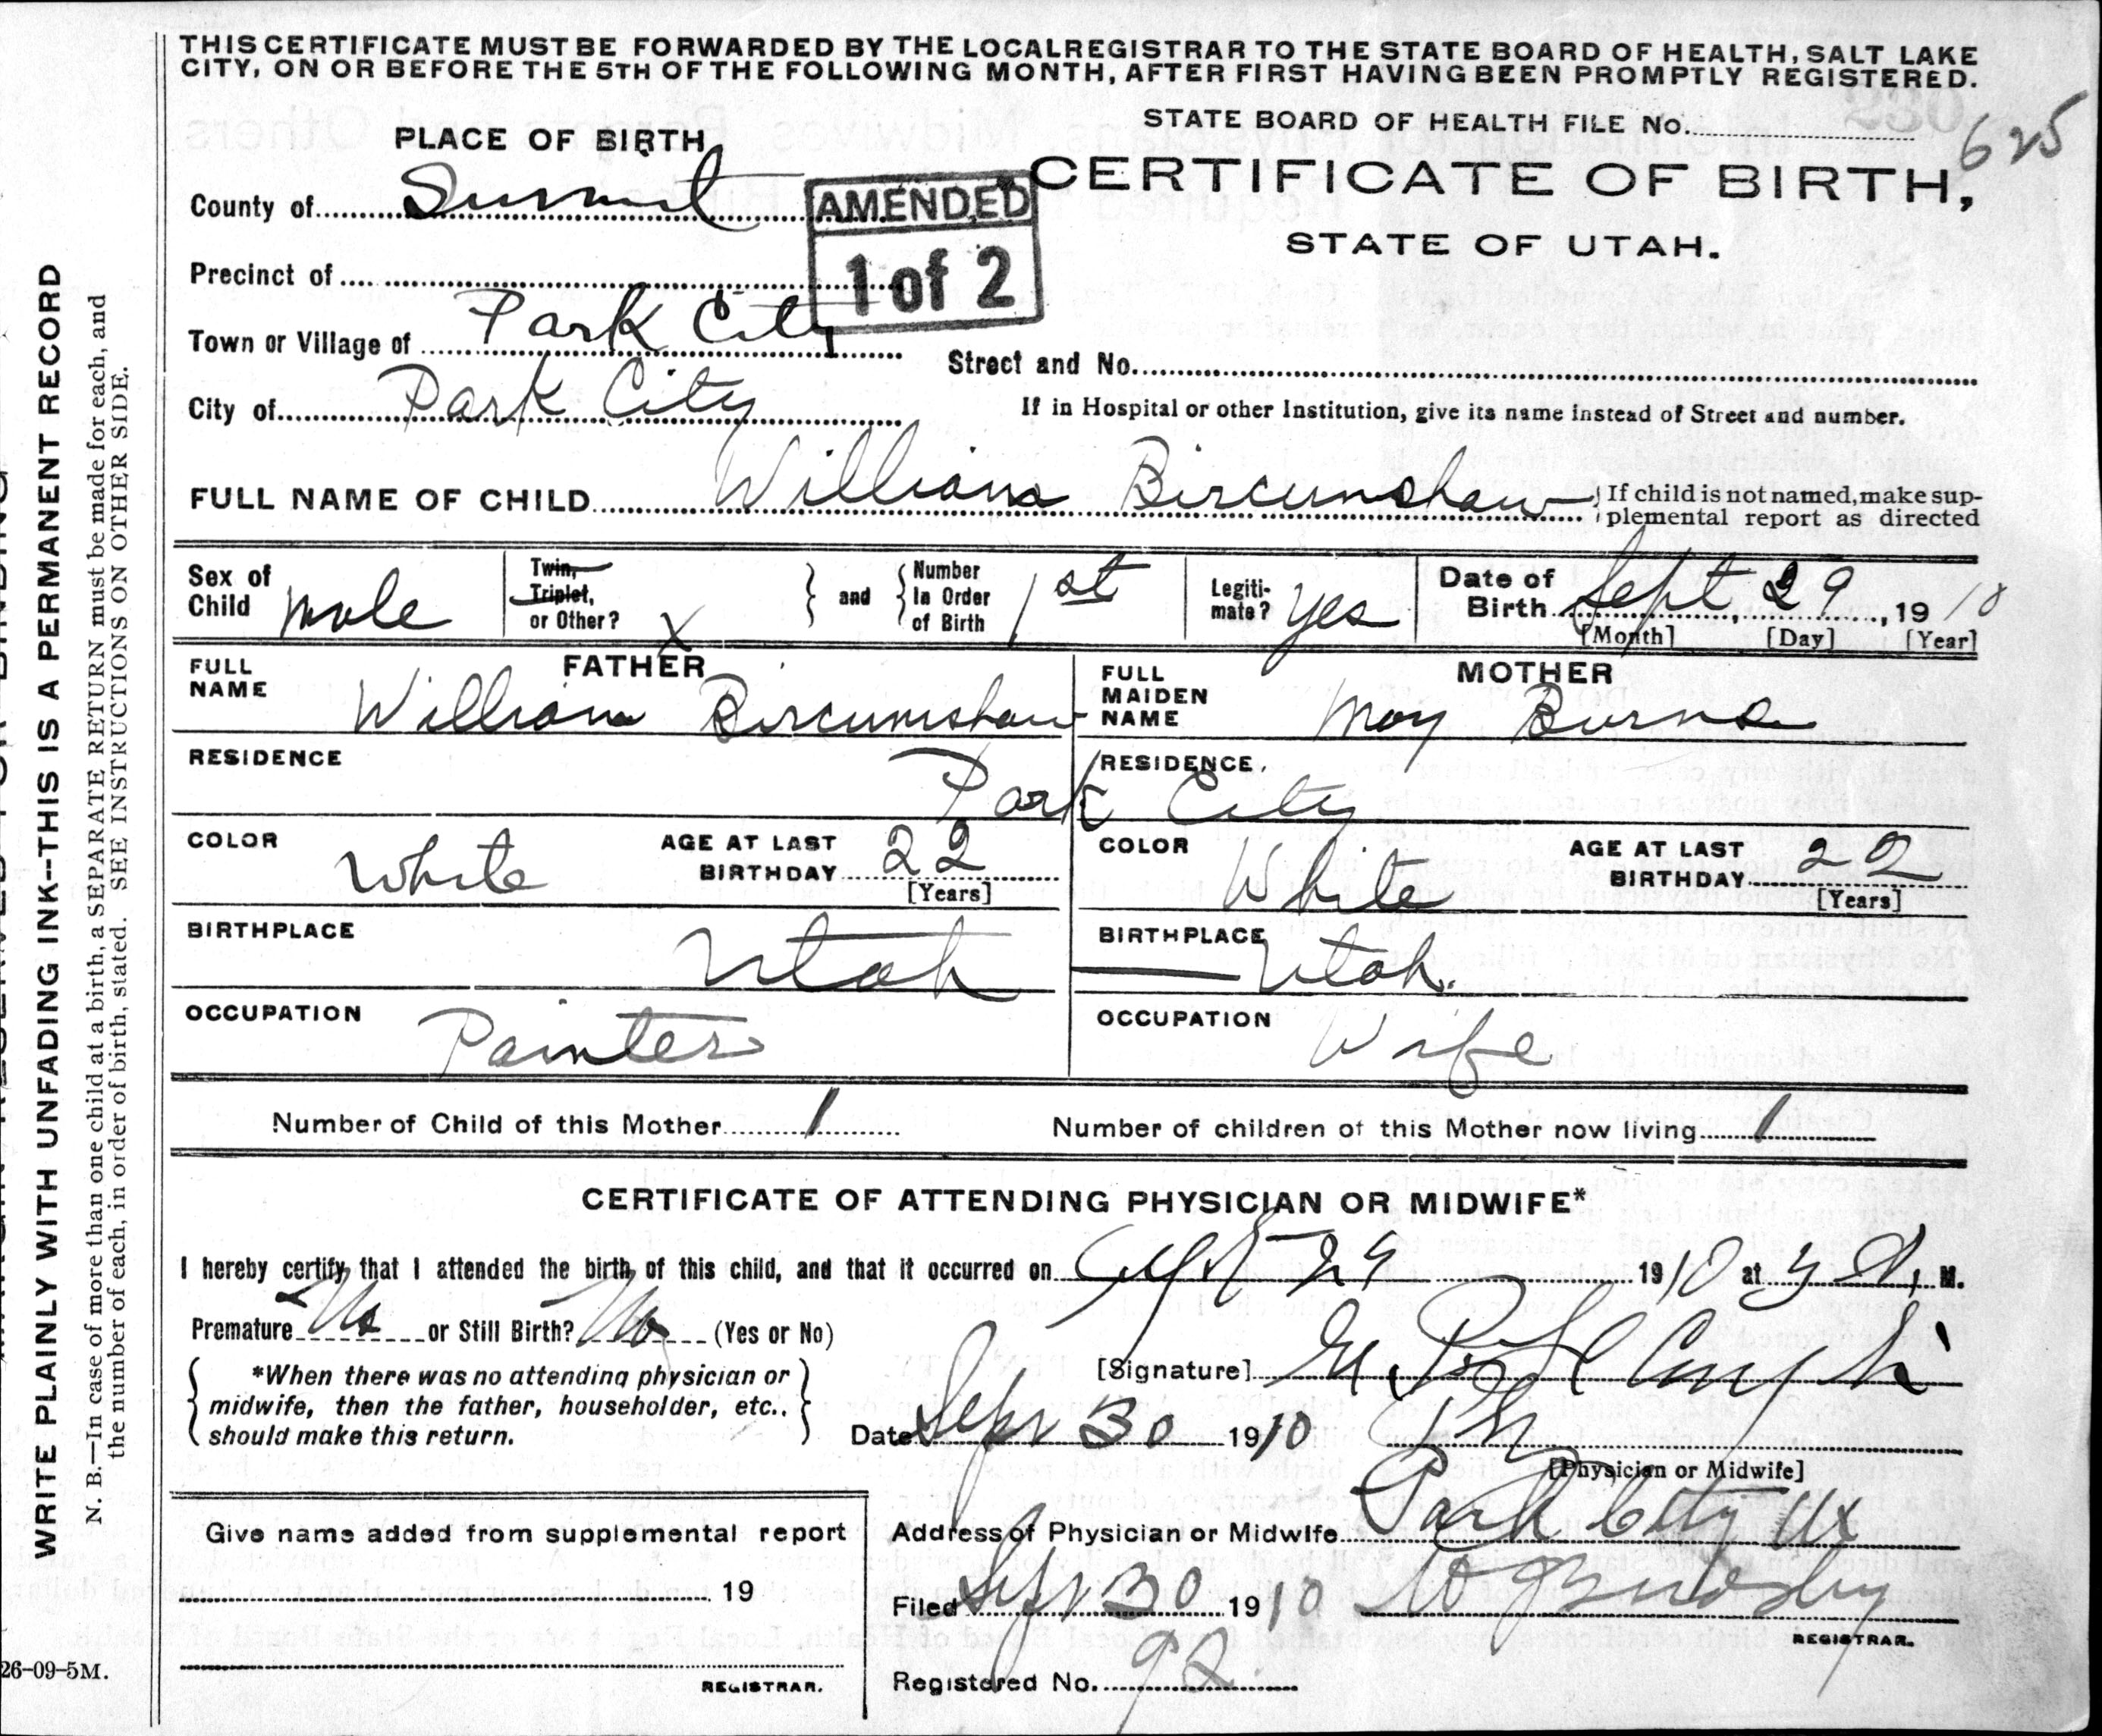 THIS CERTIFICATE MUST BE FORWARDED BY THE LOCAL REGISTRAR TO THE STATE BOARD OF HEALTH, SALT LAKE
CITY, ON OR BEFORE THE 5TH OF THE FOLLOWING MONTH, AFTER FIRST HAVING BEEN PROMPTLY REGISTERED.
STATE BOARD OF HEALTH FILE No.
625
PLACE OF BIRTH
CERTIFICATE OF BIRTH,
STATE OF UTAH.
County of Summit
AMENDED
1 of 2
Precinct of
Town or Village of Park City
Street and No.
City of Park City
If in Hospital or other Institution, give its name instead of Street and number.
FULL NAME OF CHILD William Bircumshaw
If child is not named, make sup-
plemental report as directed
Sex of Child male
Twin, Triplet, or Other? X
and
Number In Order of Birth 1st
Legiti-mate? yes
Date of Birth Sept 29, 1910
[Month] [Day] [Year]
FATHER
FULL NAME William Bircumshaw
MOTHER
FULL MAIDEN NAME May Burns
RESIDENCE RESIDENCE
Park City
COLOR White AGE AT LAST BIRTHDAY 22 [Years]
COLOR White AGE AT LAST BIRTHDAY 22 [Years]
BIRTHPLACE Utah
BIRTHPLACE Utah.
OCCUPATION Painter
OCCUPATION Wife
Number of Child of this Mother 1
Number of children of this Mother now living 1
CERTIFICATE OF ATTENDING PHYSICIAN OR MIDWIFE*
I hereby certify that I attended the birth of this child, and that it occurred on Sept 29 1910 at M.
Premature No or Still Birth? No (Yes or No)
*When there was no attending physician or
midwife, then the father, householder, etc.,
should make this return.
[Signature]
Date Sept 30 1910
[Physician or Midwife]
Address of Physician or Midwife Park City
Filed Sept 30 1910
REGISTRAR.
Registered No. 92
Give name added from supplemental report
19
REGISTRAR.
WRITE PLAINLY WITH UNFADING INK--THIS IS A PERMANENT RECORD
N. B.—In case of more than one child at a birth, a SEPARATE RETURN must be made for each, and
the number of each, in order of birth, stated. SEE INSTRUCTIONS ON OTHER SIDE.
26-09-5M.